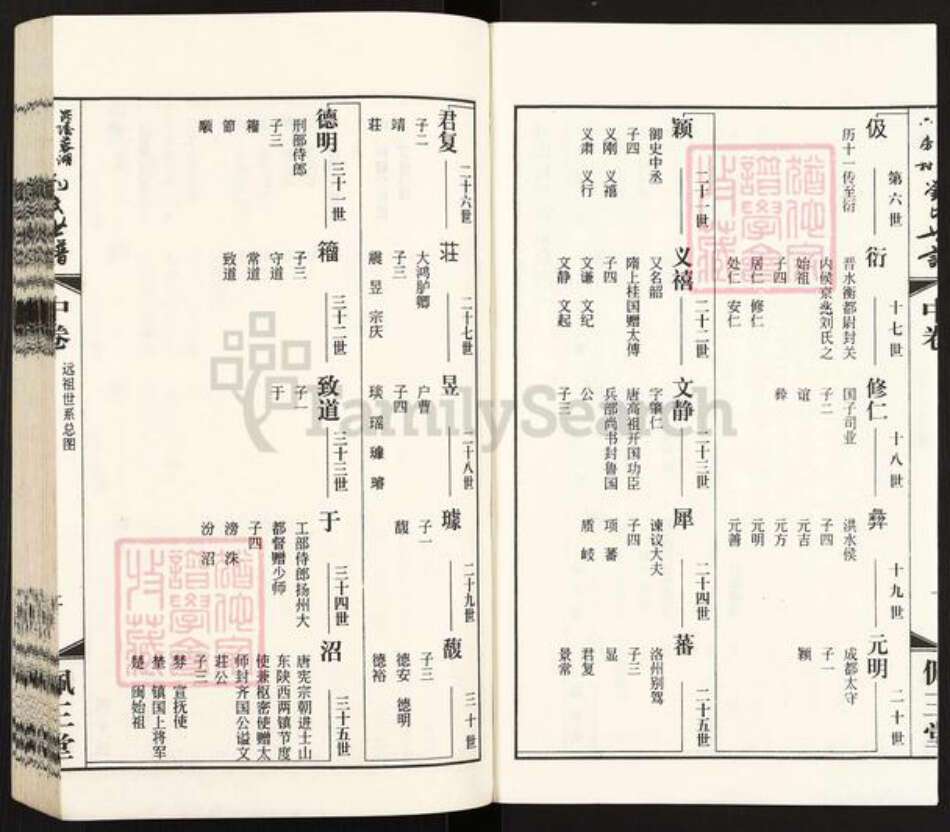 伋
第六世
历十一传至衍
衍
十七世
晋水衡都尉封关
内候京兆刘氏之
始祖
子四
居仁 修仁
处仁 安仁
修仁
十八世
国子司业
子二
谊
彝
十九世
洪水侯
子四
元吉
元方
元明
元善
元明
二十世
成都太守
子一
颖
颖
二十一世
御史中丞
子四
义刚 义禧
义肃 义行
义禧
二十二世
又名韶
隋上柱国赠太傅
子四
文谦 文纪
文静 文起
文静
二十三世
字肇仁
唐高祖开国功臣
兵部尚书封鲁国
公
子三
犀
二十四世
谏议大夫
子四
项 蕃
质 岐
蕃
二十五世
洛州别驾
子三
显
君复
景常
中卷
佩三堂
君复
二十六世
子二
靖
莊
莊
二十七世
大鸿胪卿
子三
震 昱 宗庆
昱
二十八世
户曹
子四
琰 瑶 璩 璿
璩
二十九世
子一
馥
馥
三十世
子三
德安 德明
德裕
德明
三十一世
刑部侍郎
子三
籀
节
顺
籀
三十二世
子三
守道
常道
致道
致道
三十三世
子一
于
于
三十四世
工部侍郎扬州大
都督赠少师
子四
滂 洙
汾 沼
沼
三十五世
唐宪宗朝进士山
东陕西两镇节度
使兼枢密使赠太
师封齐国公谥文
莊公
子三
棽 宣抚使
楚 镇国上将军
楚 闽始祖
氏世谱
中卷
远祖世系总图
佩三堂
FamilySearch